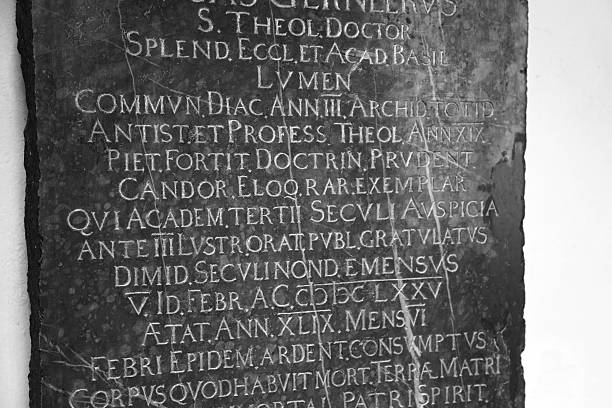 GERNLERVS
S. THEOL. DOCTOR
SPLEND. ECCL. ET ACAD. BASIL
LVMEN
COMMVN. DIAC. ANN. III. ARCHID. TOTID
ANTIST. ET PROFESS. THEOL. ANN. XIX.
PIET. FORTIT. DOCTRIN. PRVDENT
CANDOR. ELOQ. RAR. EXEMPLAR
QVI ACADEM. TERTII SECVLI AVSPICIA
ANTE III LVSTR. ORAT. PVBL. GRATVLATVS
DIMID. SECVLI NOND. EMENSVS
V. ID. FEBR. A. C. CIƆ IƆC LXXV
ÆTAT. ANN. XLIX. MENS VI
FEBRI EPIDEM. ARDENT. CONSVMPTVS
CORPVS QVOD HABVIT MORT. TERRÆ MATRI
PATRI SPIRIT.